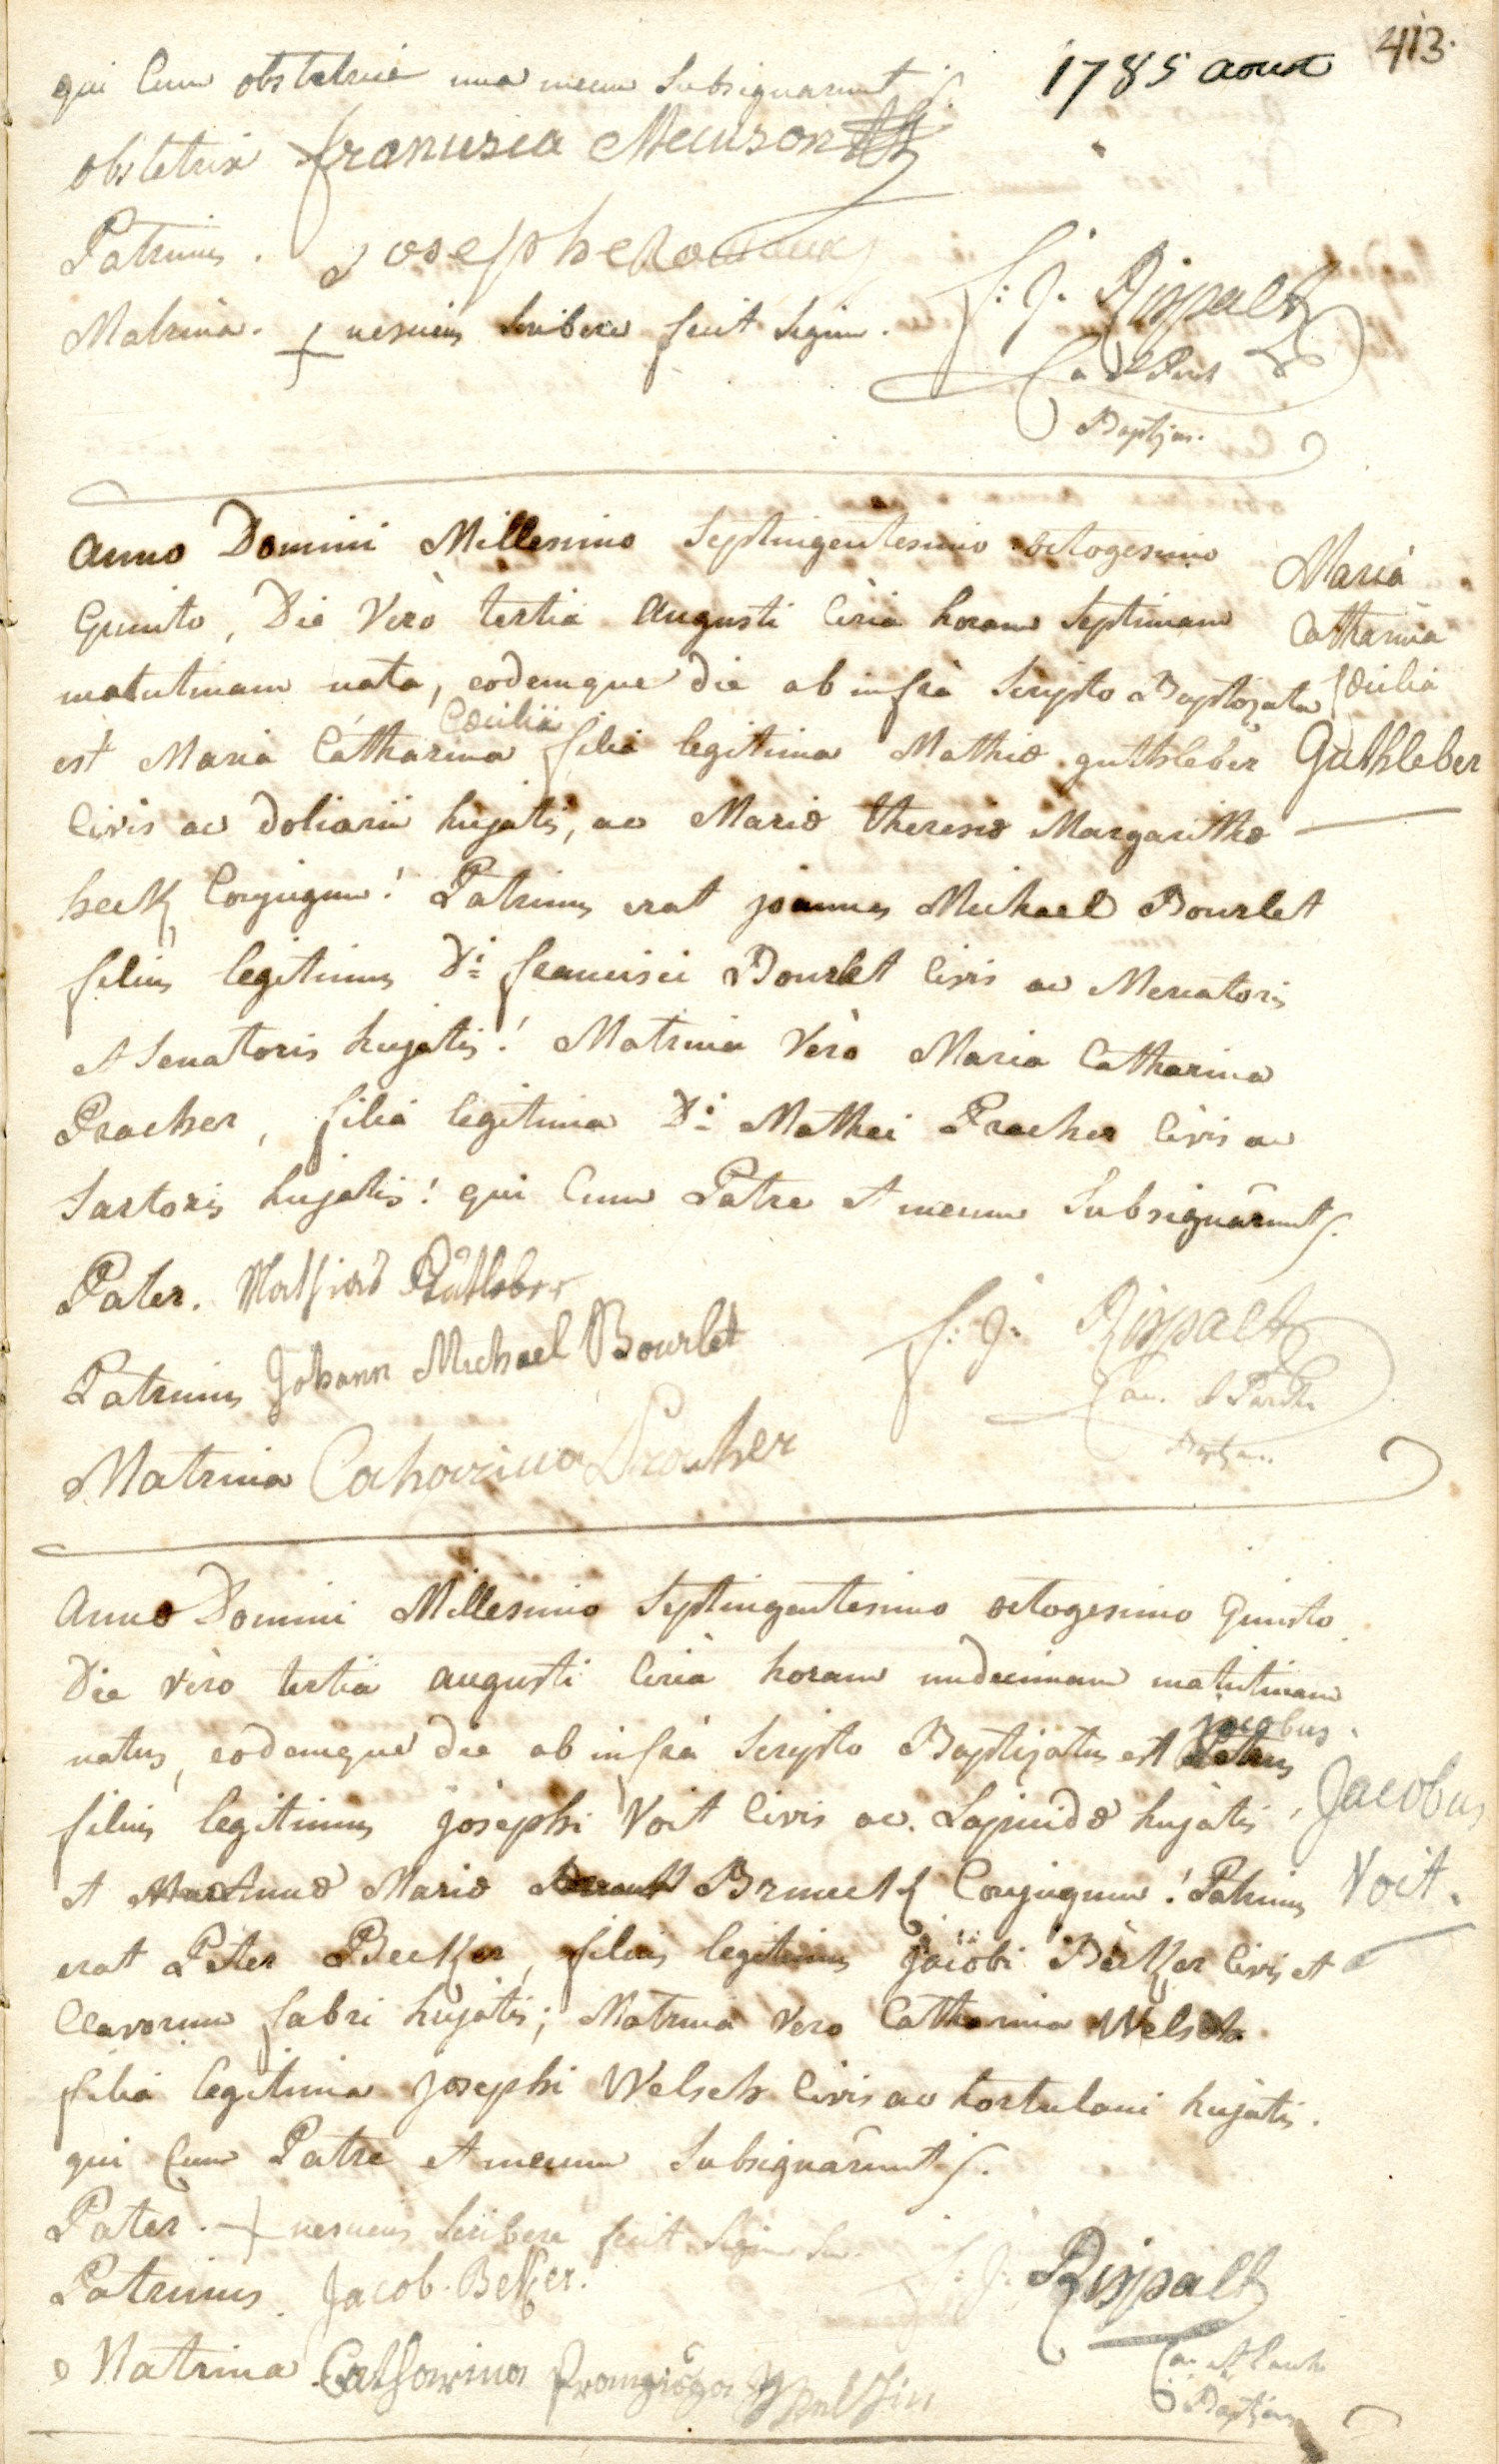 413.
1785 aoust
qui Cum obstetrice una mecum Subsignarunt
obstetrix francisca Meuson
Patrinus. Josephe
Matrina. + nesciens scribere fecit signum.
f: J. Rispalt
Can. et Paroch
Baptizans.
Anno Domini Millesimo Septingentesimo octogesimo
Quinto, Die Verò tertia Augusti Circà horam Septimam
matutinam nata, eodemque die ab infrà Scripto Baptizata
Cæcilia
est Maria Catharina filia legitima Mathiæ guthleber
Civis ac doliarii hujatis, ac Mariæ theresiæ Margarithæ
heck Conjugum! Patrinus erat joannes Michael Bourlet
filius legitimus Di francisci Bourlet Civis ac Mercatoris
et Senatoris hujatis! Matrina Verò Maria Catharina
Pracher, filia legitima Di Mathei Pracher Civis ac
Sartoris hujatis! qui Cum Patre et mecum Subsignârunt
Maria
Catharina
Cæcilia
Guthleber
Pater. Mathias Gutleber
Patrinus Johann Michael Bourlet
Matrina Caharina Pracher
f: J: Rispalt
Can. et Paroch
Baptizans
Anno Domini Millesimo Septingentesimo octogesimo Quinto
Die Vèro tertia augusti Circà horam undecimam matutinam
jacobus
natus, eodemque die ab infrà Scripto Baptizatus est Petrus
filius legitimus josephi Voit Civis ac Lapicidæ hujatis
et Annæ Mariæ Brmeck Conjugum! Patrinus
erat Peter Becker, filius legitimus jacobi Becker Civis et
Clavorum fabri hujatis; Matrina Vero Catharina Welsch
filia legitima josephi Welsch Civis ac hortulani hujatis.
qui Cum Patre et mecum Subsignârunt
Jacobus
Voit.
Pater. + nesciens scribere fecit signum
Patrinus. Jacob. Beker.
Matrina Catharina
f: J: Rispalt
Can. et Paroch
Baptizans